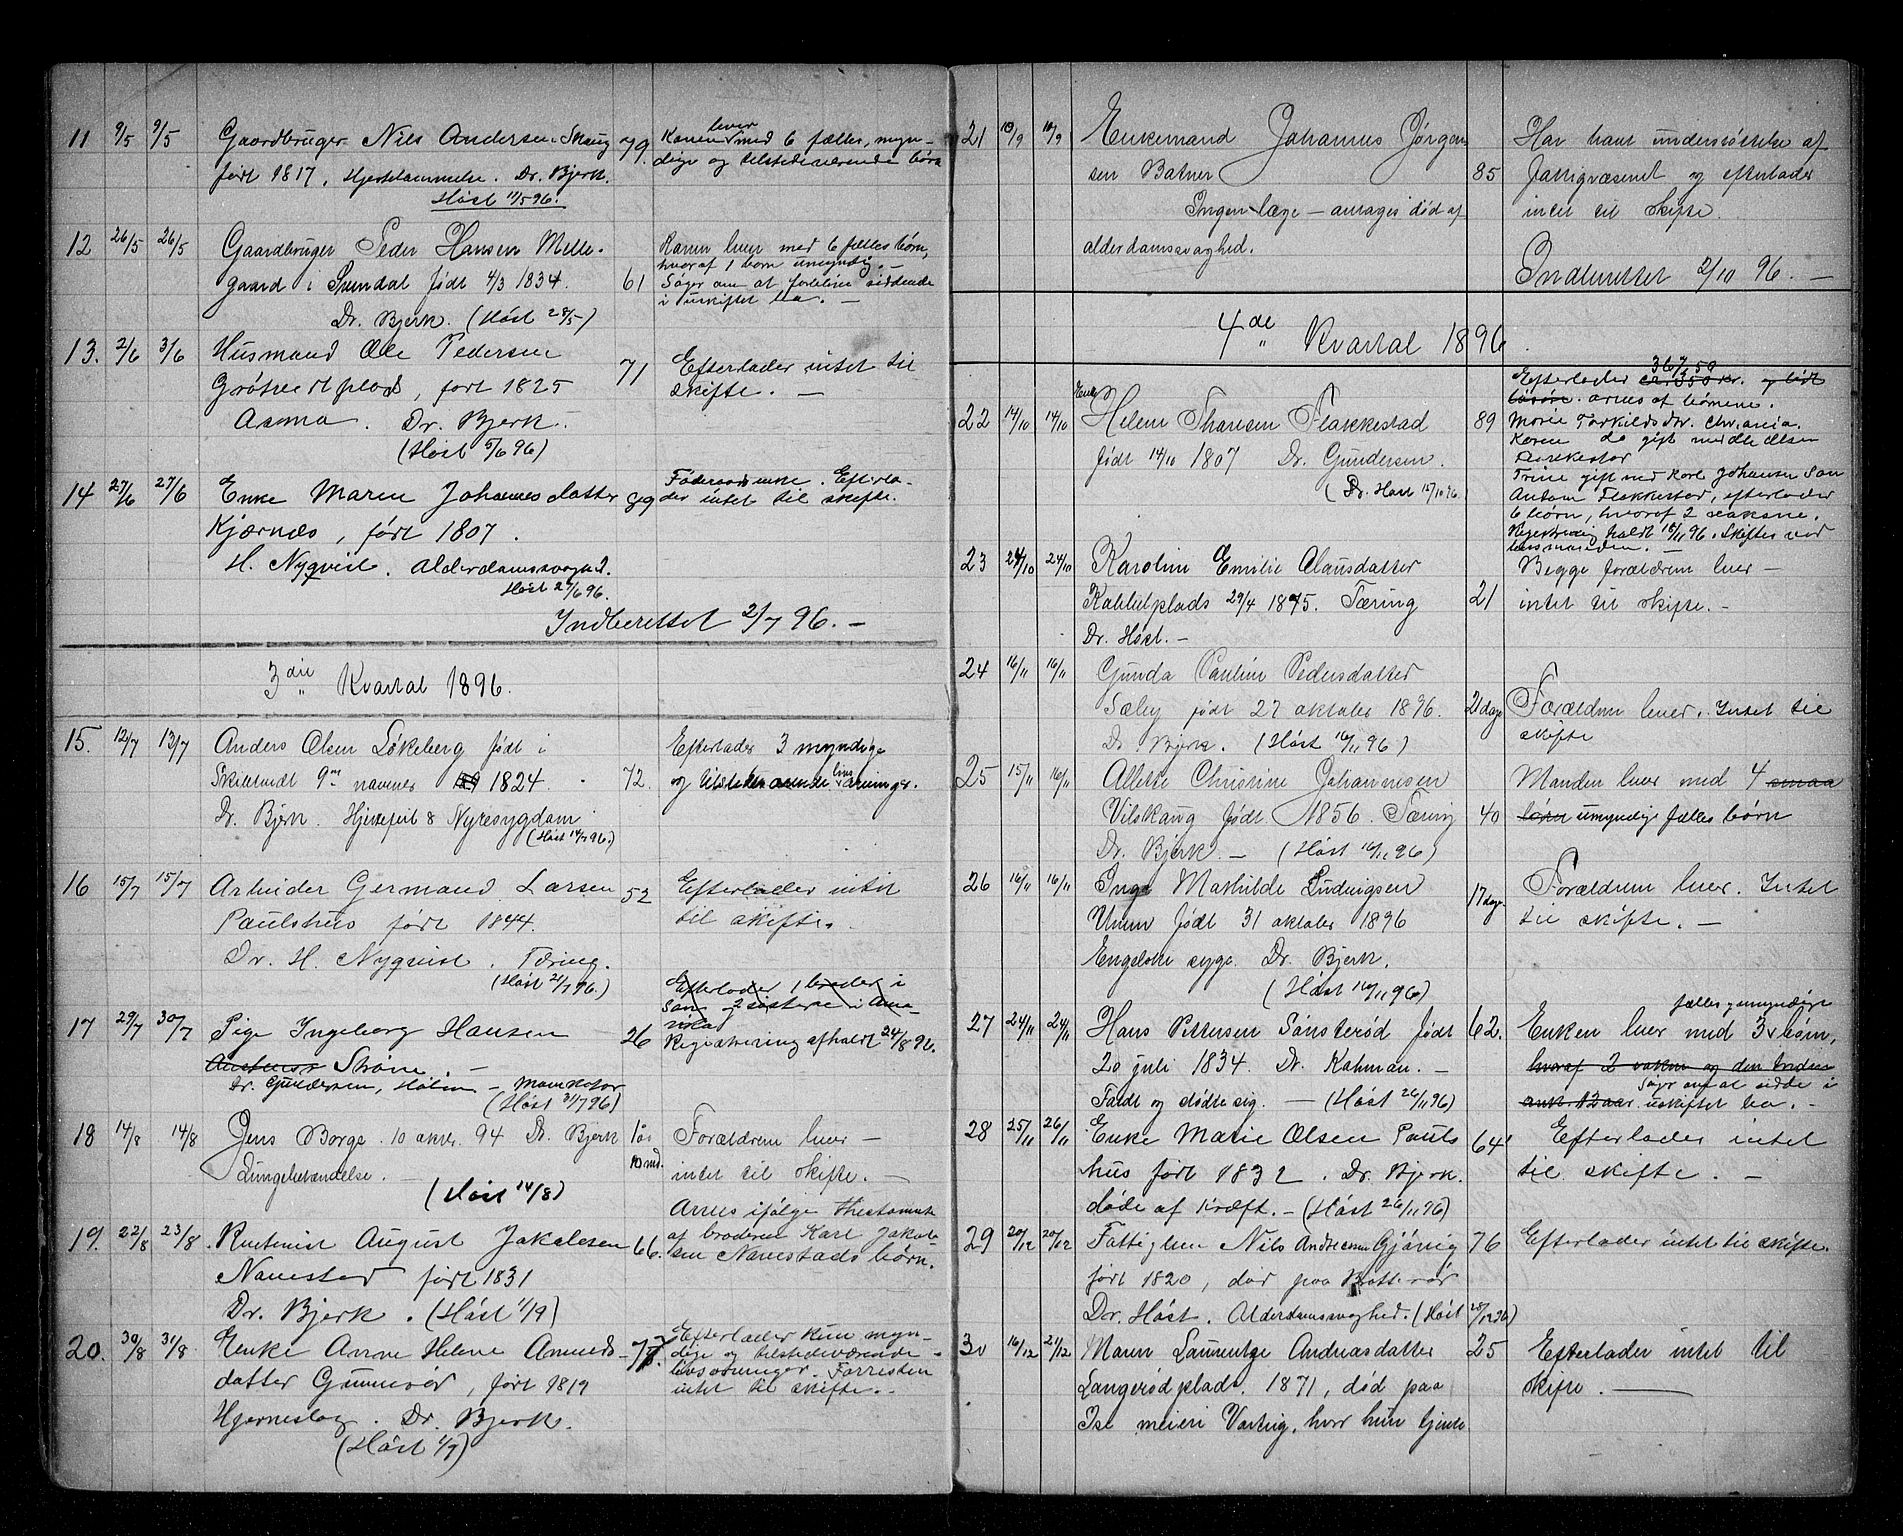 11 9/5 9/5 Gaardbruger Nils Andersen Skaug 79. Konen lever med 6 fælles, myn-
dige og tilstedeværende børn
født 1817, Hjertelammelse. Dr. Bjerk.
Høst 11/5 96.
12 26/5 26/5 Gaardbruger Peder Hansen Melle-
gaard i Svindal født 4/3 1834. 61
Dr. Bjerk. (Høst 28/5)
Konen lever med 6 fælles børn,
hvoraf 1 barn umyndig. —
Søger om at forblive siddende
i uskiftet bo. —
13. 2/6 3/6 Husmand Ole Pedersen
Grötvedtplads, født 1825 71
Asma. Dr. Bjerk.
(Høst 5/6 96)
Efterlader intet til
skifte. —
14 27/6 27/6 Enke Maren Johannesdatter 89
Kjærnæs, født 1807.
H. Nyqvist. Alderdomssvaghed.
Høst 29/6 96.
Føderaadsenke. Efterla-
der intet til skifte.
Indberettet 2/7 96. —
3die Kvartal 1896.
15. 12/7 13/7 Anders Olsen Løkeberg født i
Skibtvedt 9de november 1824. 72.
Dr. Bjerk. Hjertefeil & Nyresygdom
(Høst 14/7 96.)
Efterlader 3 myndige
og tilstedeværende livsarvinger.
16 15/7 15/7 Arbeider Germand Larsen 52
Paulshus født 1844.
Dr. H. Nyqvist. Tæring.
(Høst 21/7 96.)
Efterlader intet
til skifte.
17 29/7 30/7 Pige Ingeborg Hansen 26
Skòne. —
Dr. Gundersen, Hølen —
(Høst 31/7 96)
Efterlader 1 broder i
Son og 2 søstere i Ame-
rika
Registrering afholdt 24/8 96.
18 14/8 14/8 Jens Borge. 10 oktbr. 94 Dr. Bjerk 1 år
10 md.
Lungebetændelse. —
(Høst 14/8)
Forældrene lever —
intet til skifte. —
19. 22/8 23/8 Rentenist August Jakobsen 66.
Navestad født 1831
Dr. Bjerk. (Høst 1/9)
Arves ifølge Thestamente
af broderen Karl Jakob-
sen Navestads børn.
20. 30/8 31/8 Enke Anne Helene Amunds- 77.
datter Gunnerød, født 1819
Hjerneslag. Dr. Bjerk.
(Høst 1/9)
Efterlader kun myn-
dige og tilstedeværende
livsarvinger. Forresten
intet til skifte. —
21 10/9 10/9 Enkemand Johannes Jørgen-
sen Batner 85
Ingen læge — antages død af
alderdomssvaghed.
Har havt understøttelse af
fattigvæsenet og efterlader
intet til skifte.
Indberettet 2/10 96. —
4de Kvartal 1896.
22 14/10 14/10 Enke Helene Thoresen Flakkestad 89
født 14/10 1807 Dr. Gundersen.
(Dr. Høst 15/10 96
367,50
Efterlader ca. 350 kr. og lidt
løsøre. arves af børnene.
Marie Torkildsdtr. Chr.ania.
Karen do gift med Ole Olsen
Flakkestad
Trine gift med Karl Johansen Son
Anton Flakkestad, efterlader
6 børn, hvoraf 2 voksne.
Registrering holdt 18/11 96. Skiftes ved
lensmanden. —
23 24/10 24/10 Karoline Emilie Clausdatter
Kabbelplads 29/4 1875. Tæring 21
Dr. Høst. —
Begge forældrene lever —
intet til skifte. —
24 16/11 16/11 Gunda Pauline Pedersdatter
Sæby født 27 oktober 1896. 21 dage
Dr. Bjerk. (Høst 16/11 96)
Forældrene lever. Intet til
skifte
25 15/11 16/11 Allette Christine Johannesen
Vilskaug født 1856. Tæring 40
Dr. Bjerk. — (Høst 16/11 96)
Manden lever med 4 smaa
børn umyndige fælles børn
26 16/11 16/11 Inga Mathilde Ludvigsen
Unum født 31 oktober 1896 17 dage
Engelske syge. Dr. Bjerk.
(Høst 16/11 96)
Forældrene lever. Intet
til skifte. —
27 24/11 24/11 Hans Pettersen Sønsterød født 62.
20 juli 1834. Dr. Kahman. —
Faldt og stødte sig. — (Høst 26/11 96)
fælles, umyndige
Enken lever med 3 børn,
hvoraf 2 voksne og den tredie
Søger om at sidde i
ank. 12 aar. uskiftet bo. —
28 25/11 26/11 Enke Marie Olsen Pauls 64
hus født 1832. Dr. Bjerk.
døde af Kræft. — (Høst 26/11 96)
Efterlader intet
til skifte. —
29 20/12 20/12 Fattiglem Nils Andersen Gjövig 76
født 1820, død paa Botterød
Dr. Høst. Alderdomssvaghed. (Høst 28/12 96)
Efterlader intet til skifte.
30 16/12 21/12 Maren Laurentze Andreasdatter 25
Langerødplads. 1871, død paa
Ise meieri Varteig, hvor hun tjente
Efterlader intet til
skifte. —